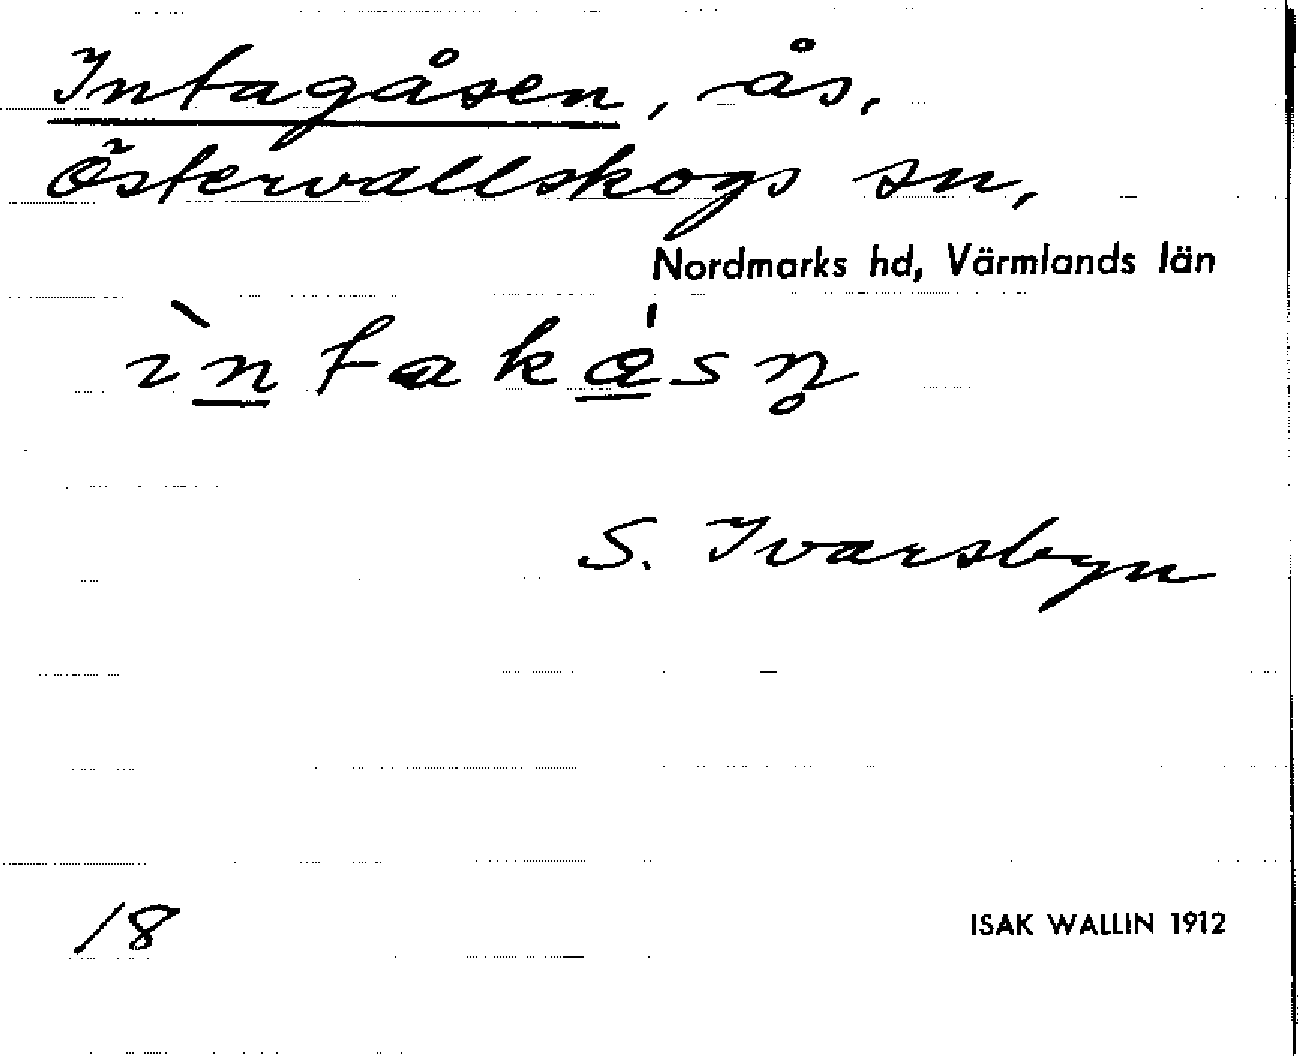 Intagåsen, ås,
Östervallskogs sn,
Nordmarks hd, Värmlands län
ìntakåsn̥
S. Ivarsbyn
18
ISAK WALLIN 1912